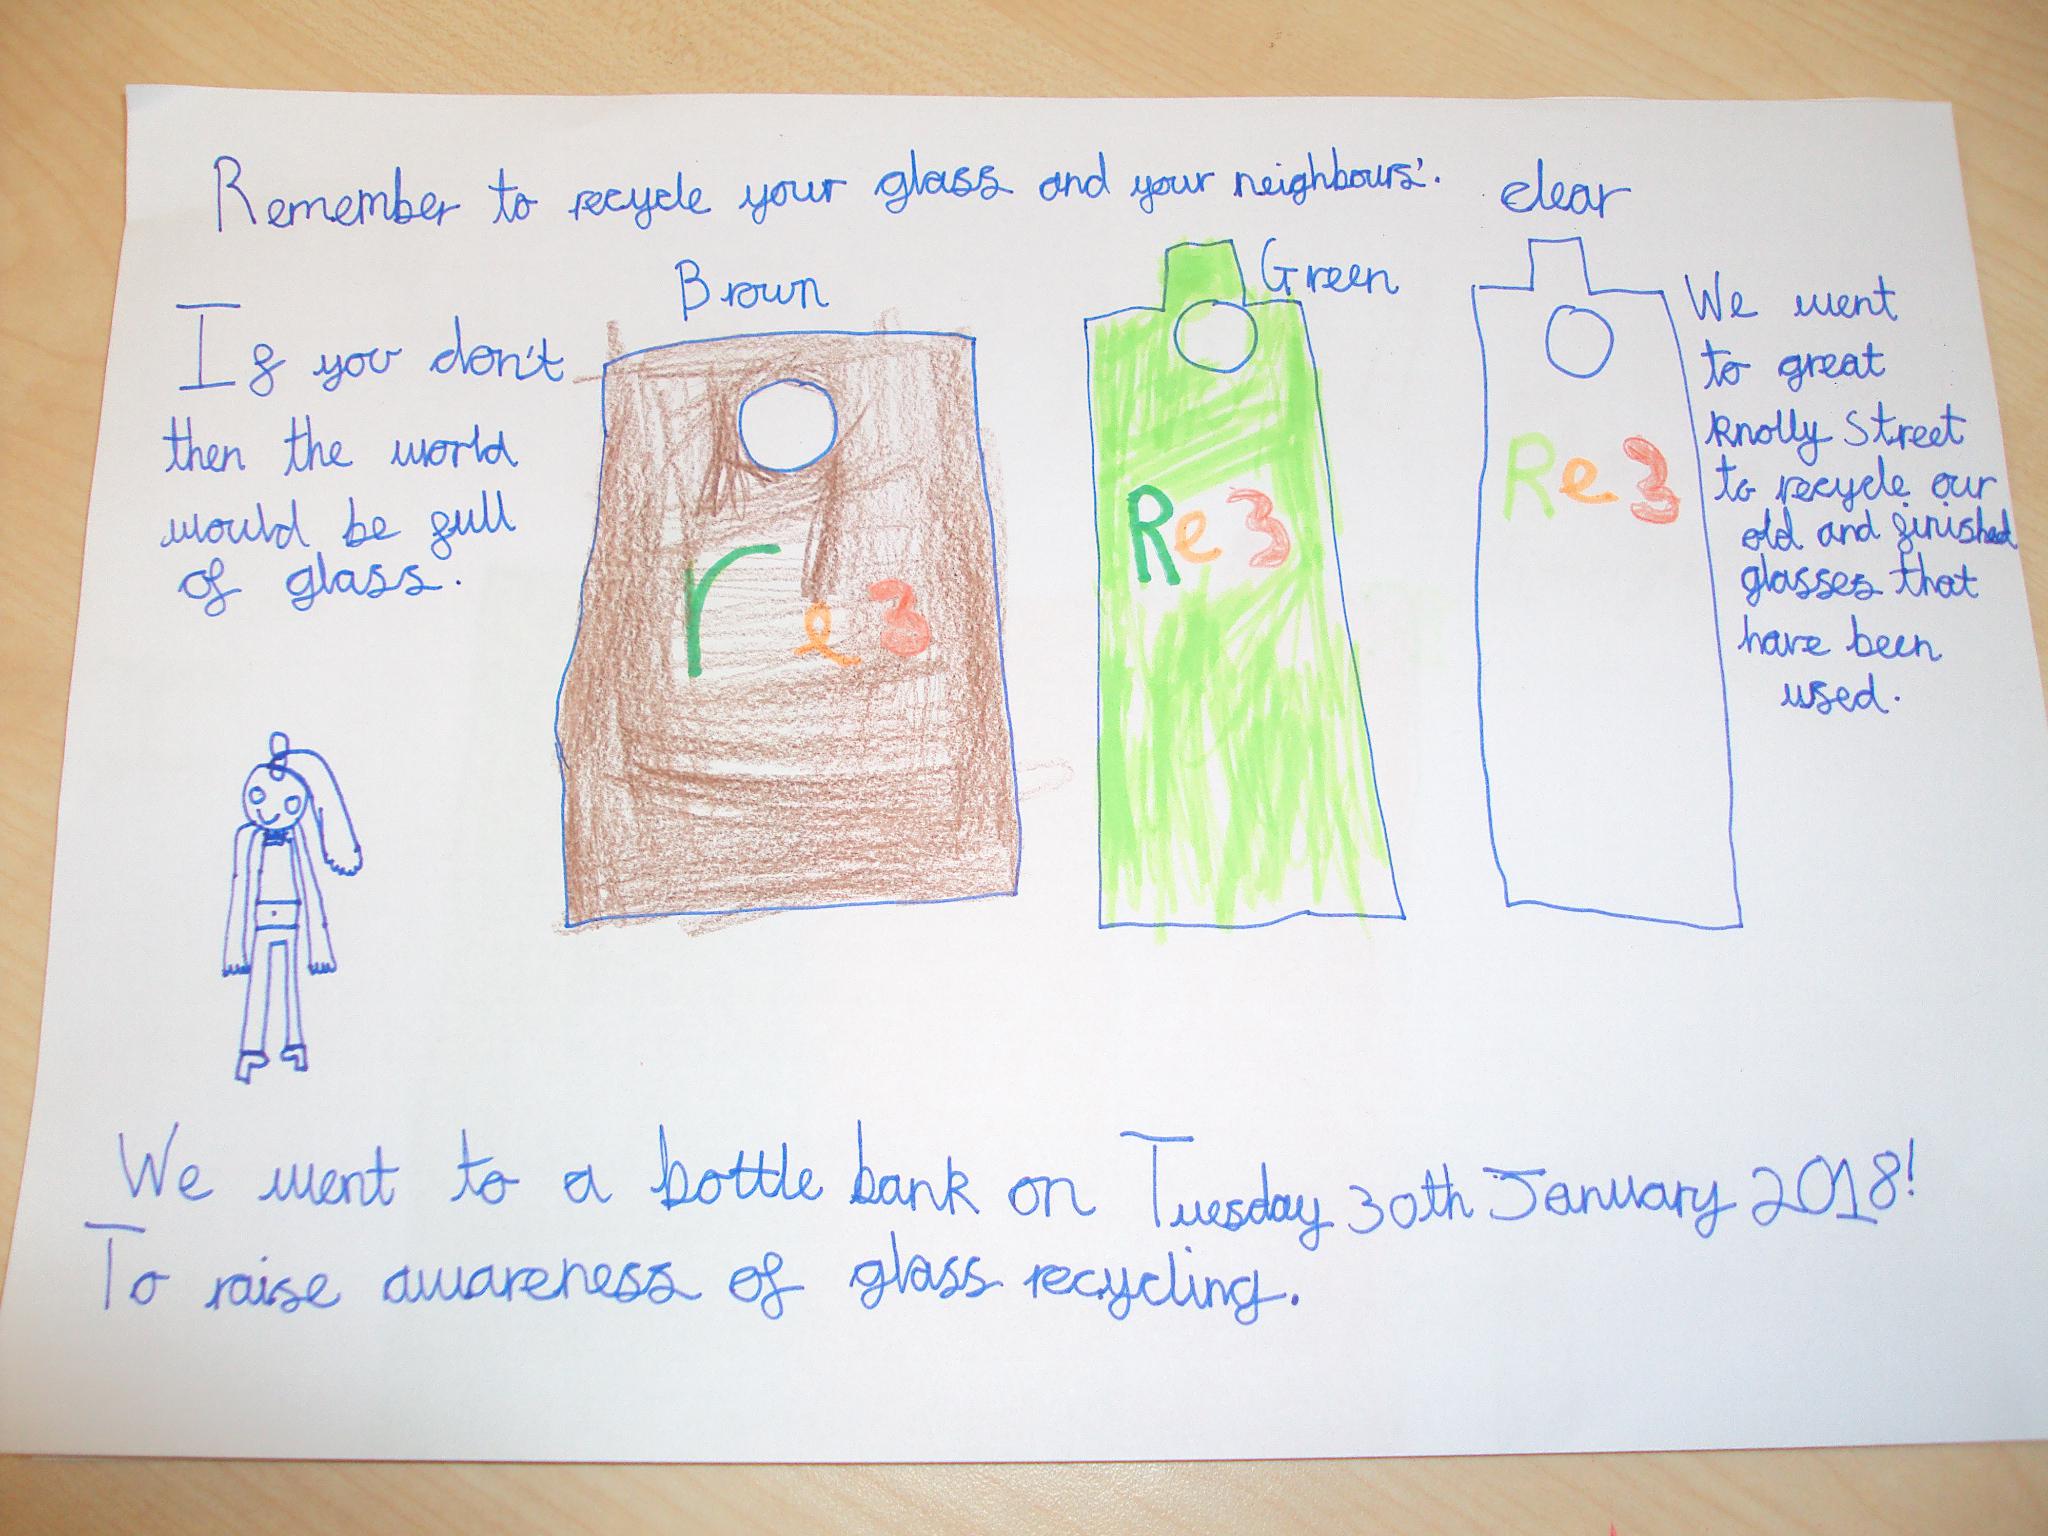 Remember to recycle your glass and your neighbours'.
If you don't
then the world
would be full
of glass.
Brown
re3
Green
Re3
clear
Re3
We went
to great
Knolly Street
to recycle our
old and finished
glasses that
have been
used.
We went to a bottle bank on Tuesday 30th January 2018!
To raise awareness of glass recycling.